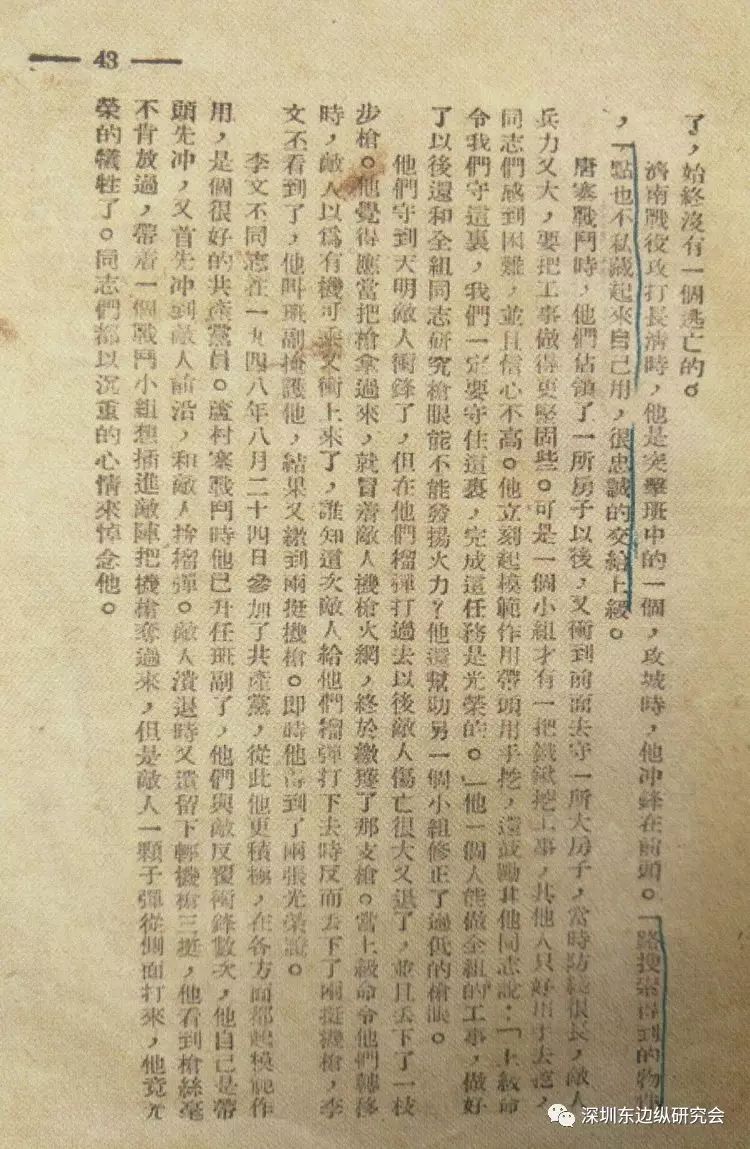 — 43 —
了，始終沒有一個逃亡的。
濟南戰役攻打長清時，他是突擊班中的一個，攻城時，他冲鋒在前頭。一路搜索得到的物
，一點也不私藏起來自己用，很忠誠的交給上級。
唐寨戰鬥時，他們佔領了一所房子以後，又衝到前面去守一所大房子，當時防綫很長，敵人
兵力又大，要把工事做得更堅固些。可是一個小組才有一把鐵鍬挖工事，其他人只好用手去挖，
同志們感到困難，並且信心不高。他立刻起模範作用帶頭用手挖，還鼓勵其他同志說：「上級命
令我們守這裏，我們一定要守住這裏，完成這任務是光榮的。」他一個人能做全組的工事，做好
了以後還和全組同志研究槍眼能不能發揚火力？他還幫助另一個小組修正了過低的槍眼。
他們守到天明敵人衝鋒了，但在他們榴彈打過去以後敵人傷亡很大又退了，並且丢下了一枝
步槍。他覺得應當把槍拿過來，就冒着敵人機槍火網，終於繳獲了那支槍。當上級命令他們轉移
時，敵人以爲有機可乘又衝上來了，誰知這次敵人給他們榴彈打下去時反而丢下了兩挺機槍，李
文丕看到了，他叫班副掩護他，結果又繳到兩挺機槍。即時他得到了兩張光榮證。
李文丕同志在一九四八年八月二十四日參加了共產黨，從此他更積極，在各方面都起模範作
用，是個很好的共產黨員。蘆村寨戰鬥時他已升任班副了，他們與敵反覆衝鋒數次，他自己是帶
頭先冲，又首先冲到敵人前沿，和敵人拚榴彈。敵人潰退時又遺留下輕機槍三挺，他看到槍絲毫
不肯放過，帶着一個戰鬥小組想插進敵陣把機槍奪過來，但是敵人一顆子彈從側面打來，他竟光
榮的犧牲了。同志們都以沉重的心情來悼念他。
深圳东边纵研究会